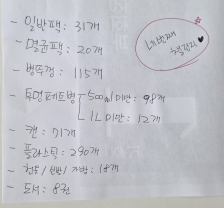 - 일반팩 : 31개
- 멸균팩 : 20개
- 병뚜껑 : 115개
- 투명페트병 500ml 미만 : 98개
1L 미만 : 12개
- 캔 : 71개
- 플라스틱 : 290개
- 헌옷 / 신발 / 가방 : 18개
- 도서 : 8권
네번째